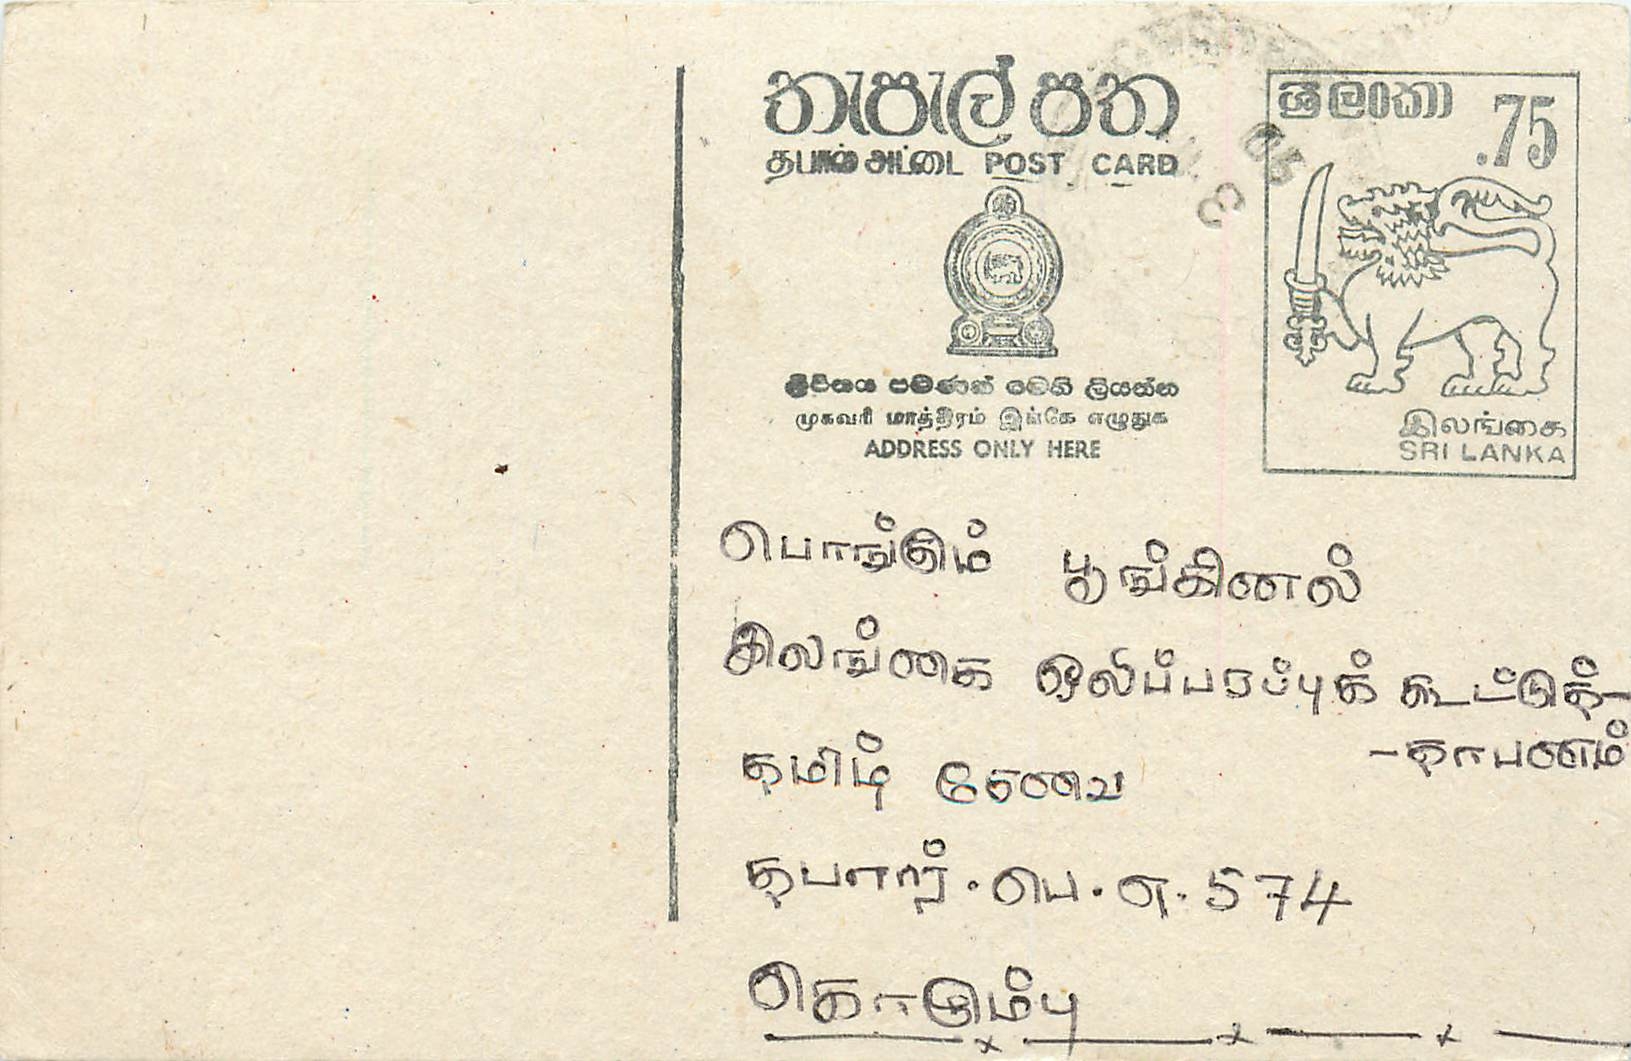 තැපැල් පත
ශ්‍රී ලංකා .75
தபால் அட்டை POST CARD
ලිපිනය පමණක් මෙහි ලියන්න
முகவரி மாத்திரம் இங்கே எழுதுக
ADDRESS ONLY HERE
இலங்கை
SRI LANKA
பொங்கும் பூங்கினல்
இலங்கை ஒலிப்பரப்புக் கூட்டுத்-
-தாபனம்
தமிழ் சேவை
தபால். பெ. எ. 574
கொழும்பு